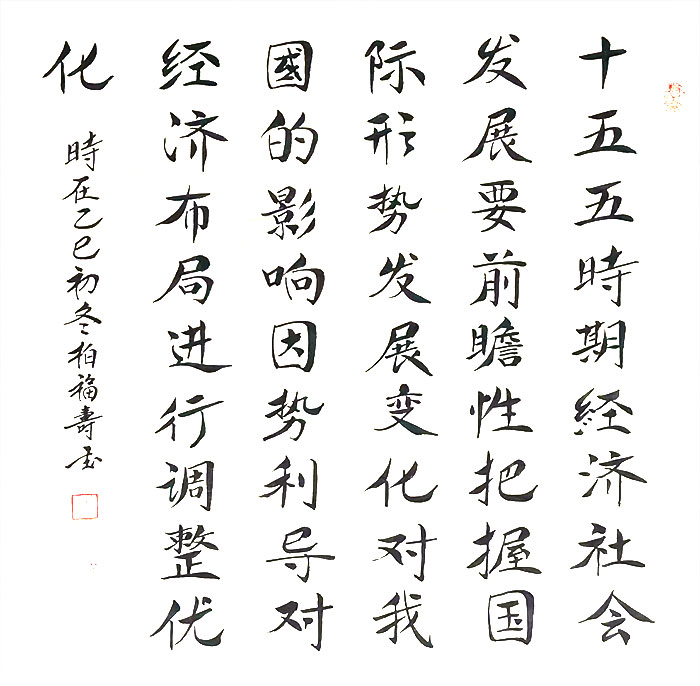 十五五時期经济社会
发展要前瞻性把握国
际形势发展变化对我
國的影响因势利导对
经济布局进行调整优
化
時在乙巳初冬柏福壽玉